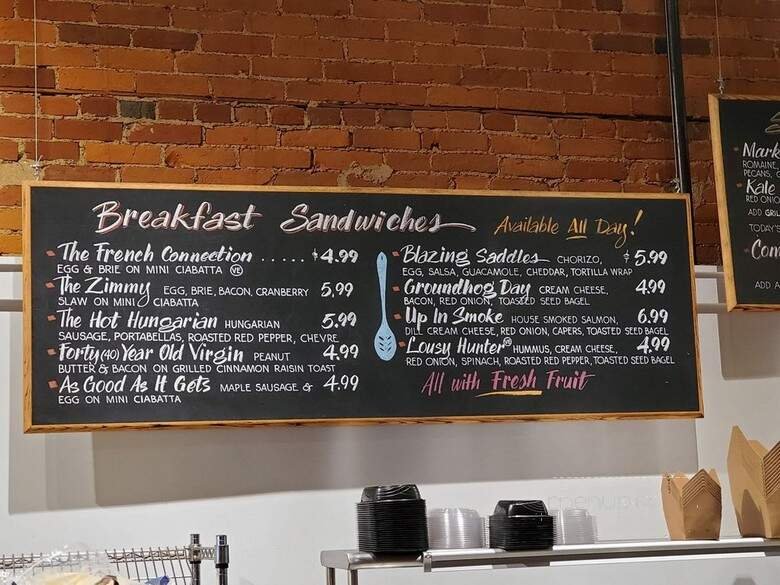 Breakfast Sandwiches Available All Day!
The French Connection ..... $4.99
EGG & BRIE ON MINI CIABATTA VE
The Zimmy EGG, BRIE, BACON, CRANBERRY 5.99
SLAW ON MINI CIABATTA
The Hot Hungarian HUNGARIAN 5.99
SAUSAGE, PORTABELLAS, ROASTED RED PEPPER, CHEVRE
Forty (40) Year Old Virgin PEANUT 4.99
BUTTER & BACON ON GRILLED CINNAMON RAISIN TOAST
As Good As It Gets MAPLE SAUSAGE & 4.99
EGG ON MINI CIABATTA
Blazing Saddles CHORIZO, $5.99
EGG, SALSA, GUACAMOLE, CHEDDAR, TORTILLA WRAP
Groundhog Day CREAM CHEESE, 4.99
BACON, RED ONION, TOASTED SEED BAGEL
Up In Smoke HOUSE SMOKED SALMON, 6.99
DILL CREAM CHEESE, RED ONION, CAPERS, TOASTED SEED BAGEL
Lousy Hunter VE HUMMUS, CREAM CHEESE, 4.99
RED ONION, SPINACH, ROASTED RED PEPPER, TOASTED SEED BAGEL
All with Fresh Fruit
ROMAINE,
PECANS,
Kale
RED ONIO
ADD
TODAY'S
ADD A